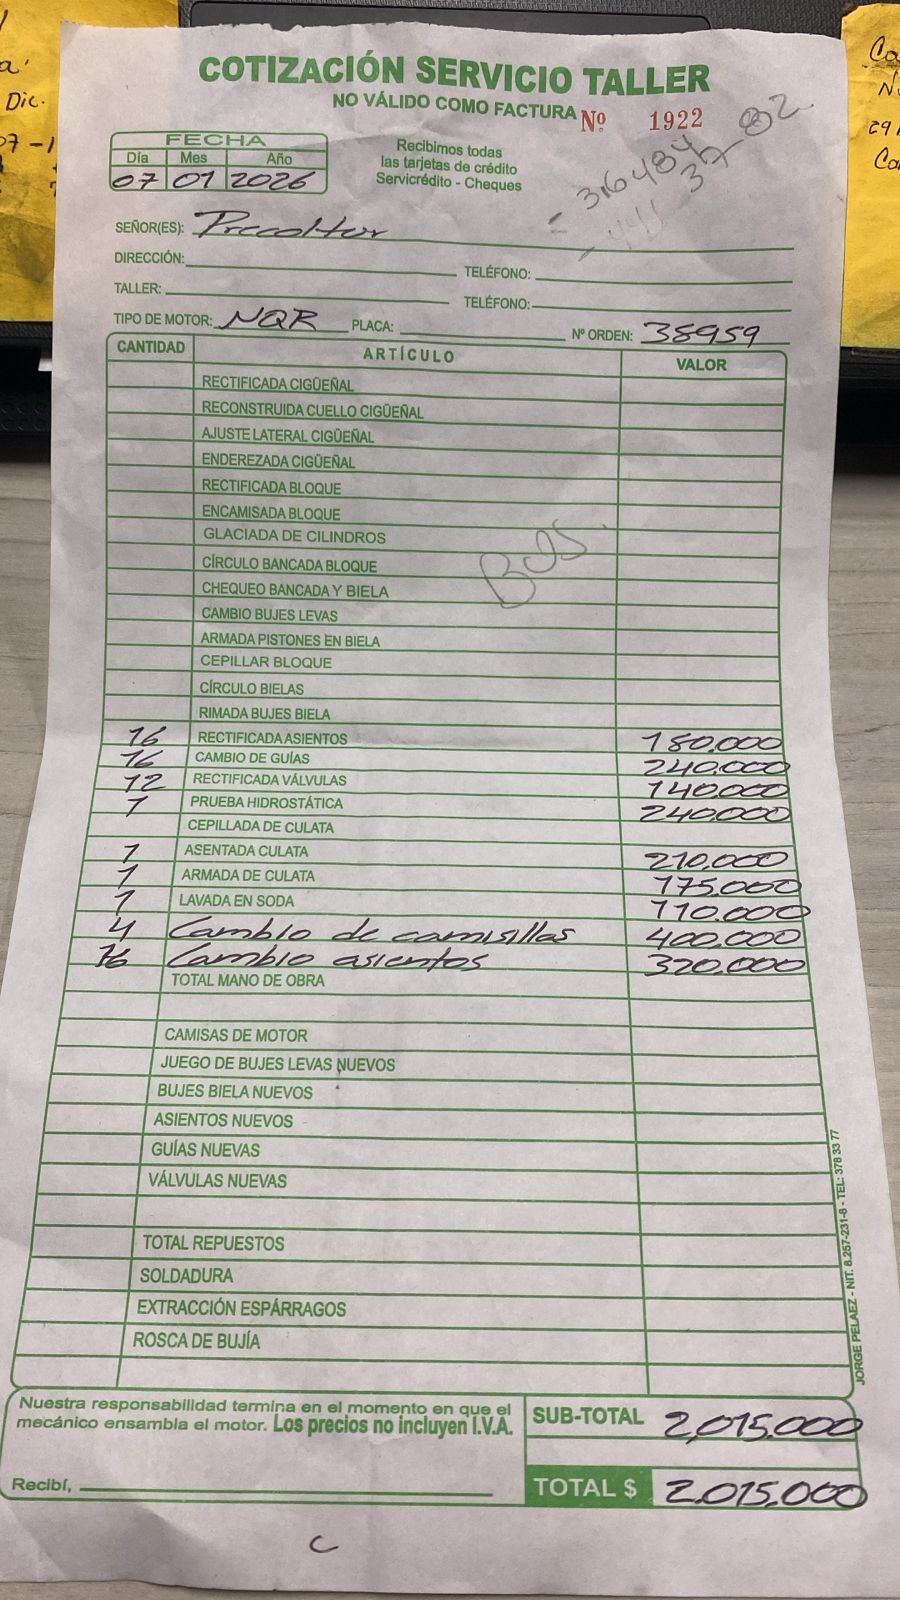 COTIZACIÓN SERVICIO TALLER
NO VÁLIDO COMO FACTURA Nº 1922
FECHA
Día Mes Año
07 01 2026
Recibimos todas
las tarjetas de crédito
Servicrédito - Cheques
SEÑOR(ES):
DIRECCIÓN: TELÉFONO:
TALLER: TELÉFONO:
TIPO DE MOTOR: NQR PLACA: Nº ORDEN: 38959
CANTIDAD ARTÍCULO VALOR
RECTIFICADA CIGÜEÑAL
RECONSTRUIDA CUELLO CIGÜEÑAL
AJUSTE LATERAL CIGÜEÑAL
ENDEREZADA CIGÜEÑAL
RECTIFICADA BLOQUE
ENCAMISADA BLOQUE
GLACIADA DE CILINDROS
CÍRCULO BANCADA BLOQUE
CHEQUEO BANCADA Y BIELA
CAMBIO BUJES LEVAS
ARMADA PISTONES EN BIELA
CEPILLAR BLOQUE
CÍRCULO BIELAS
RIMADA BUJES BIELA
16 RECTIFICADA ASIENTOS 180.000
16 CAMBIO DE GUÍAS 240.000
12 RECTIFICADA VÁLVULAS 140.000
1 PRUEBA HIDROSTÁTICA 240.000
CEPILLADA DE CULATA
1 ASENTADA CULATA 210.000
1 ARMADA DE CULATA 175.000
1 LAVADA EN SODA 110.000
4 Cambio de camisillas 400.000
16 Cambio asientos 320.000
TOTAL MANO DE OBRA
CAMISAS DE MOTOR
JUEGO DE BUJES LEVAS NUEVOS
BUJES BIELA NUEVOS
ASIENTOS NUEVOS
GUÍAS NUEVAS
VÁLVULAS NUEVAS
TOTAL REPUESTOS
SOLDADURA
EXTRACCIÓN ESPÁRRAGOS
ROSCA DE BUJÍA
JORGE PELAEZ - NIT. 8.257-231-8 - TEL: 378 33 77
Nuestra responsabilidad termina en el momento en que el
mecánico ensambla el motor. Los precios no incluyen I.V.A.
SUB-TOTAL 2,015.000
Recibí,
TOTAL $ 2.015,000